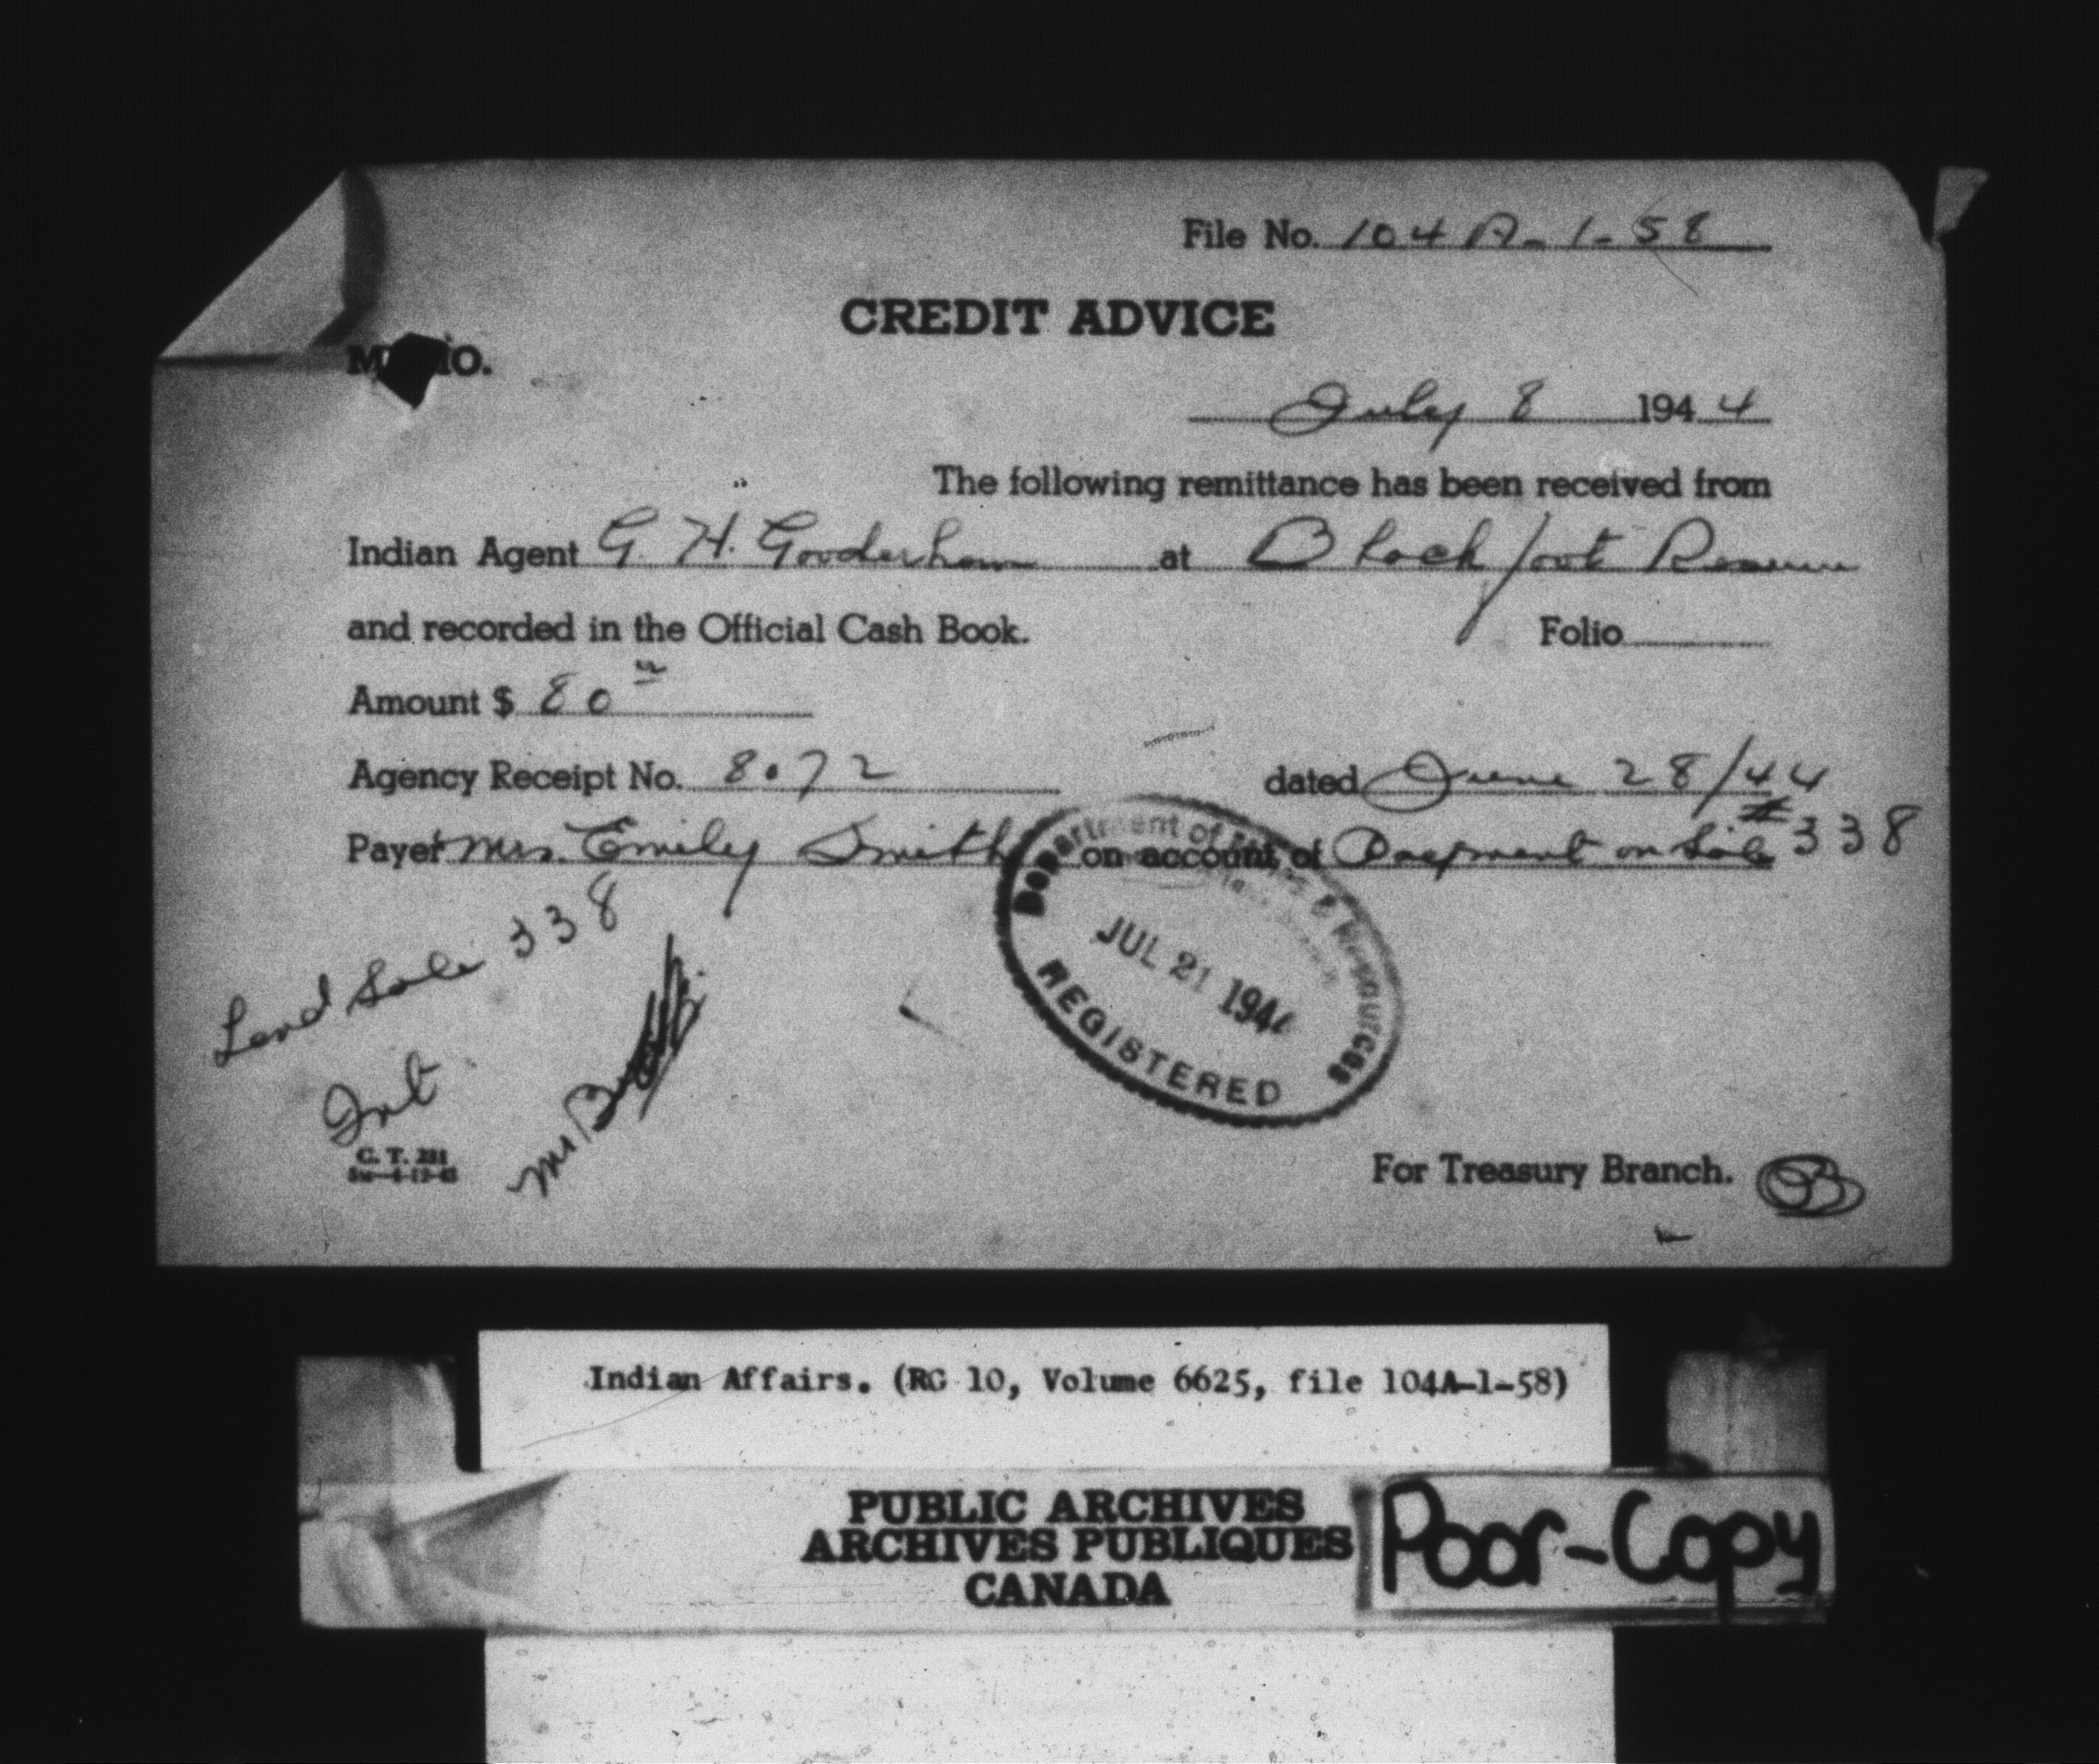 File No. 104 A-1-58
CREDIT ADVICE
M IO.
July 8 1944
The following remittance has been received from
Indian Agent G. H. Gooderham at Blackfoot Reserve
and recorded in the Official Cash Book. Folio
Amount $ 80
Agency Receipt No. 8072 dated June 28/44
Payer Mrs. Emily Smith on account of Payment on Sale #338
Land Sale 338
Department of Mines & Resources
JUL 21 1944
REGISTERED
Int
Mr
C. T. 231
For Treasury Branch.
Indian Affairs. (RG 10, Volume 6625, file 104A-1-58)
PUBLIC ARCHIVES
ARCHIVES PUBLIQUES
CANADA
Poor-Copy